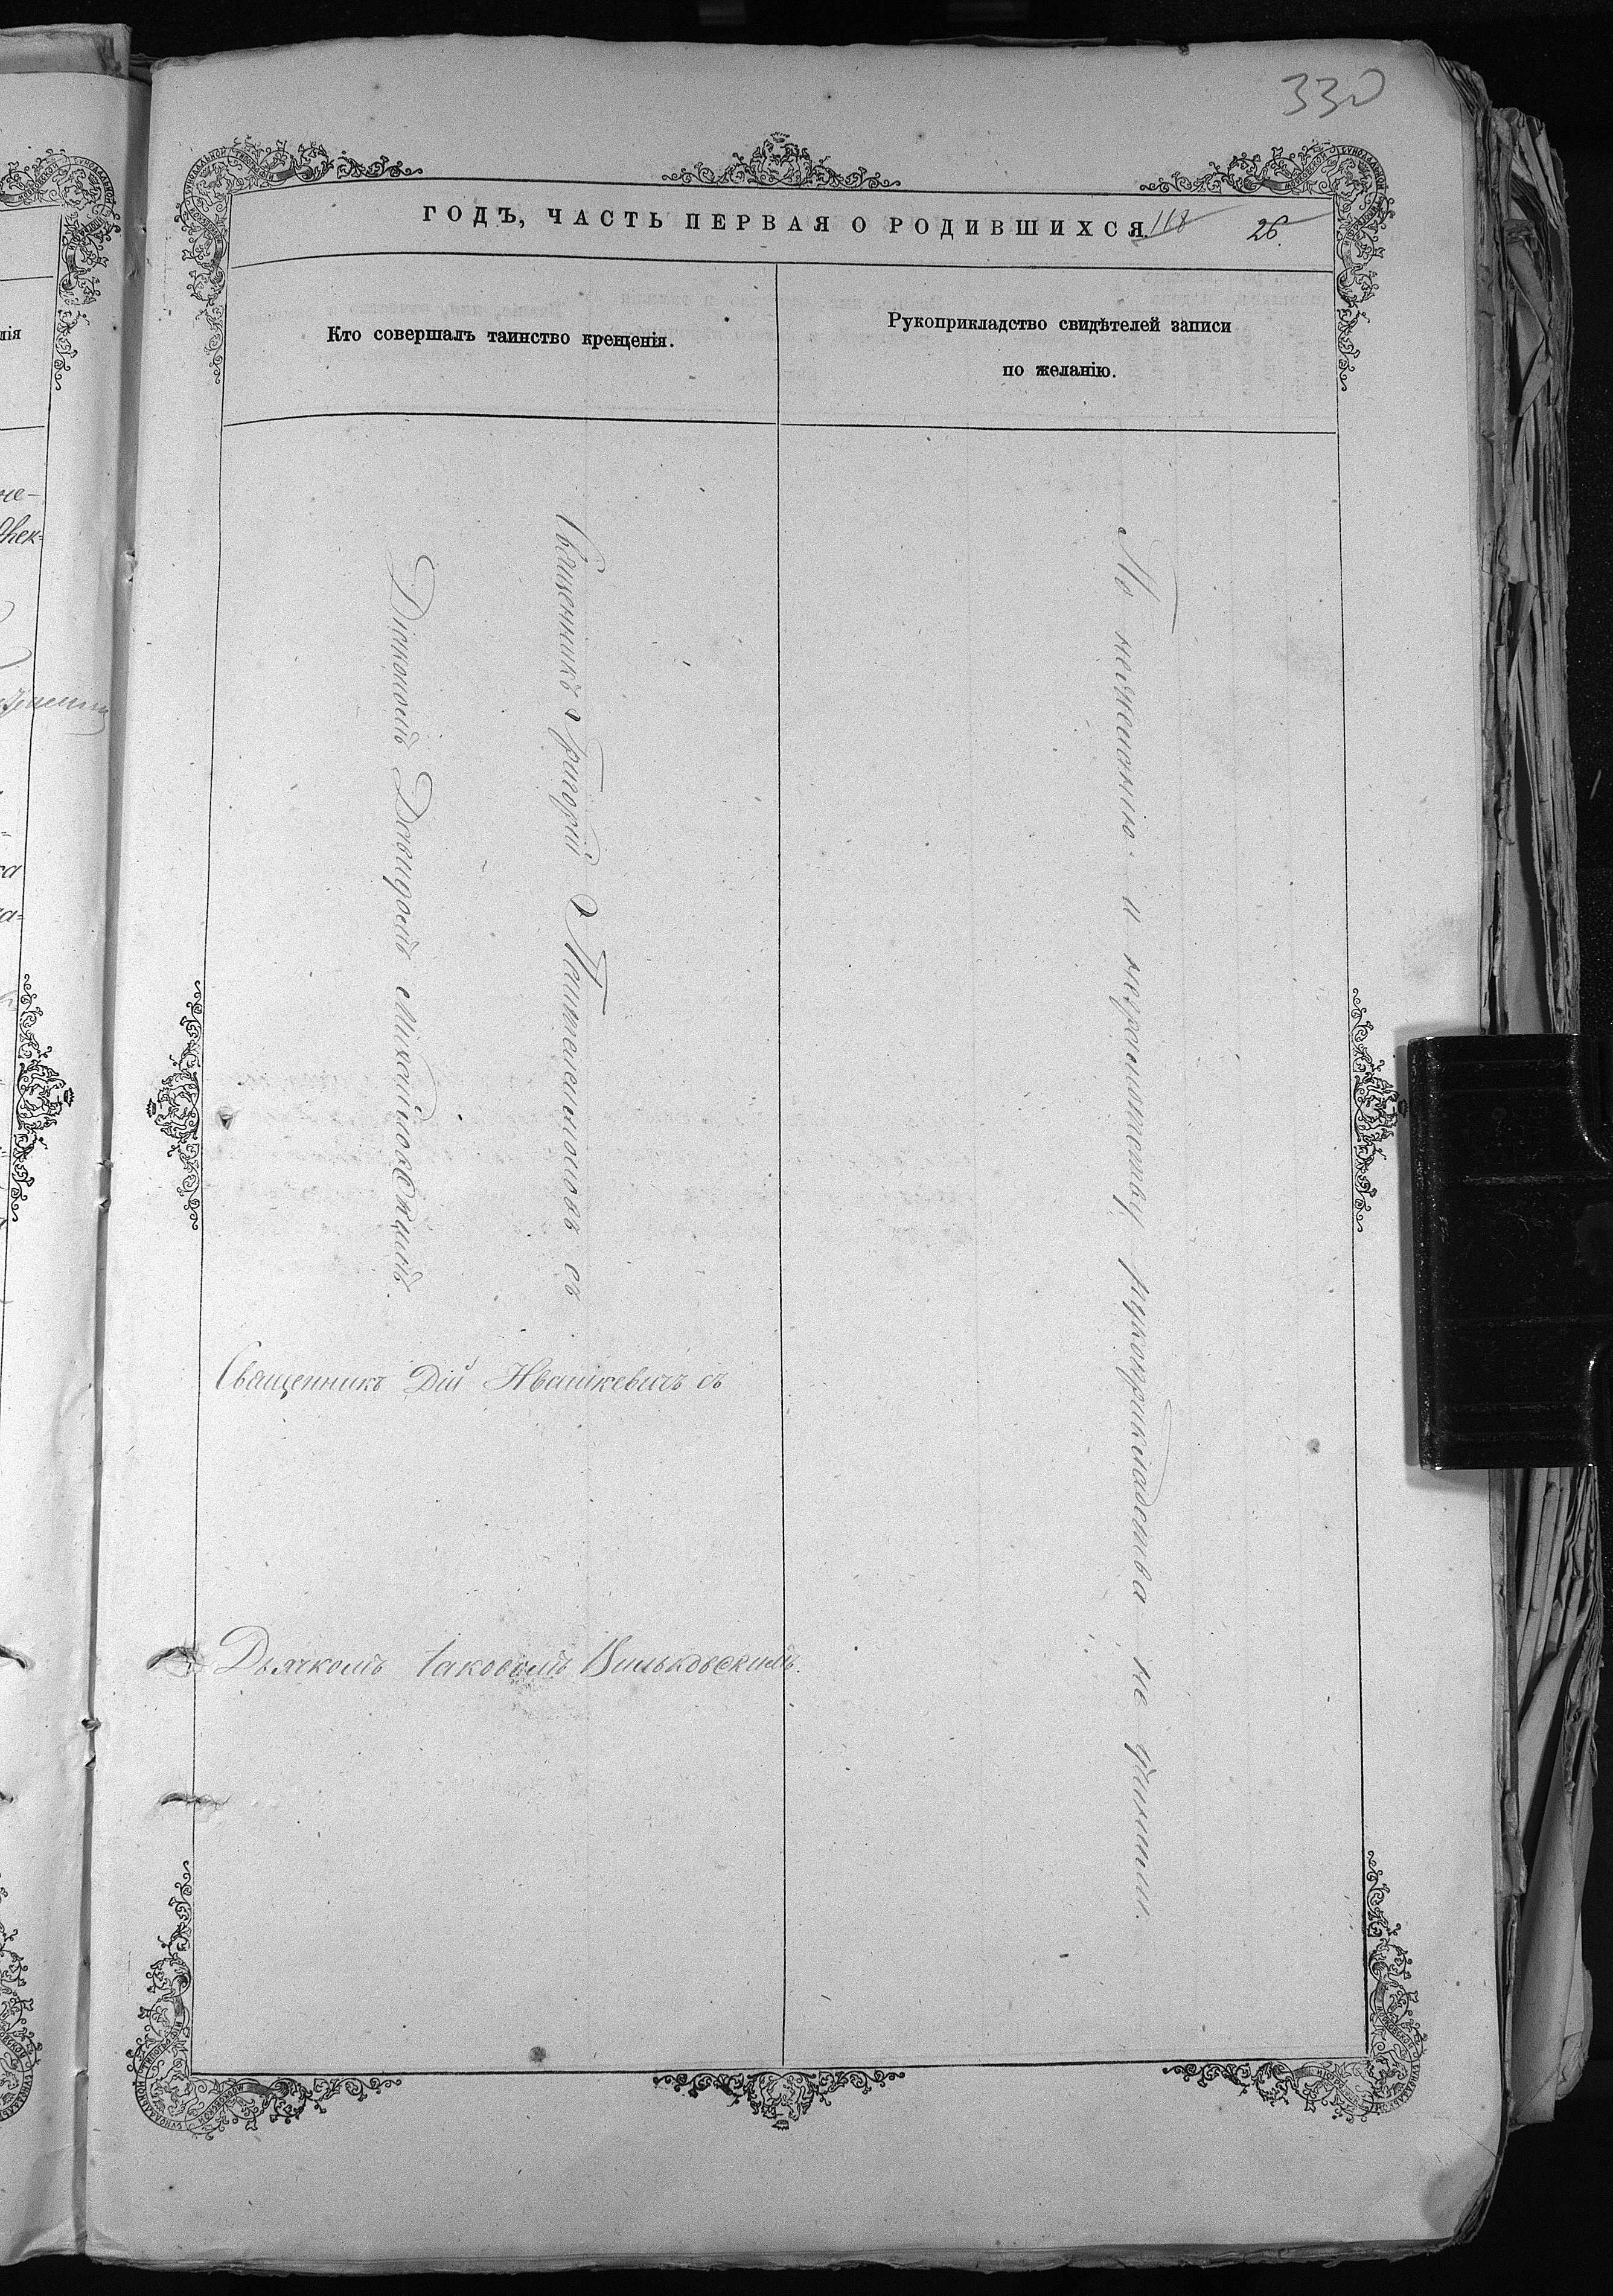 330
ГОДЪ, ЧАСТЬ ПЕРВАЯ О РОДИВШИХСЯ.
118
26.
Кто совершалъ таинство крещенія.
Священникъ Григорій съ
Діакономъ Давидомъ Михайловскимъ.
Священникъ Дій Ивашкевичъ съ
Дьячкомъ Іаковомъ Вильковскимъ.
Рукоприкладство свидѣтелей записи
по желанію.
По нежеланію и неграмотству рукоприкладства не учинили.